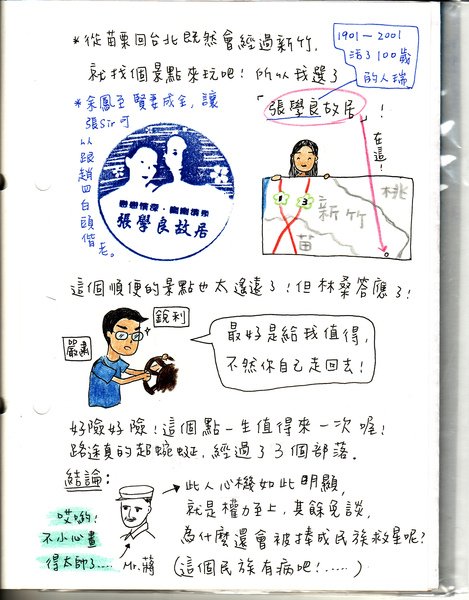 *從苗栗回台北既然會經過新竹,
就找個景點來玩吧! 所以我選了
「張學良故居」!
1901－2001
活了100歲
的人瑞
*余鳳至賢妻成全, 讓
張Sir可
以跟趙四白頭偕老。
張學良故居
在這!
桃
新竹
苗
3
這個順便的景點也太遙遠了!但林桑答應了!
嚴肅
銳利
最好是給我值得,
不然你自己走回去!
好險好險!這個點一生值得來一次喔!
路途真的超蜿蜒, 經過了3個部落.
結論:
此人心機如此明顯,
就是權力至上, 其餘免談,
為什麼還會被捧成民族救星呢?
(這個民族有病吧!.....)
哎喲!
不小心畫
得太帥了....
Mr.蔣